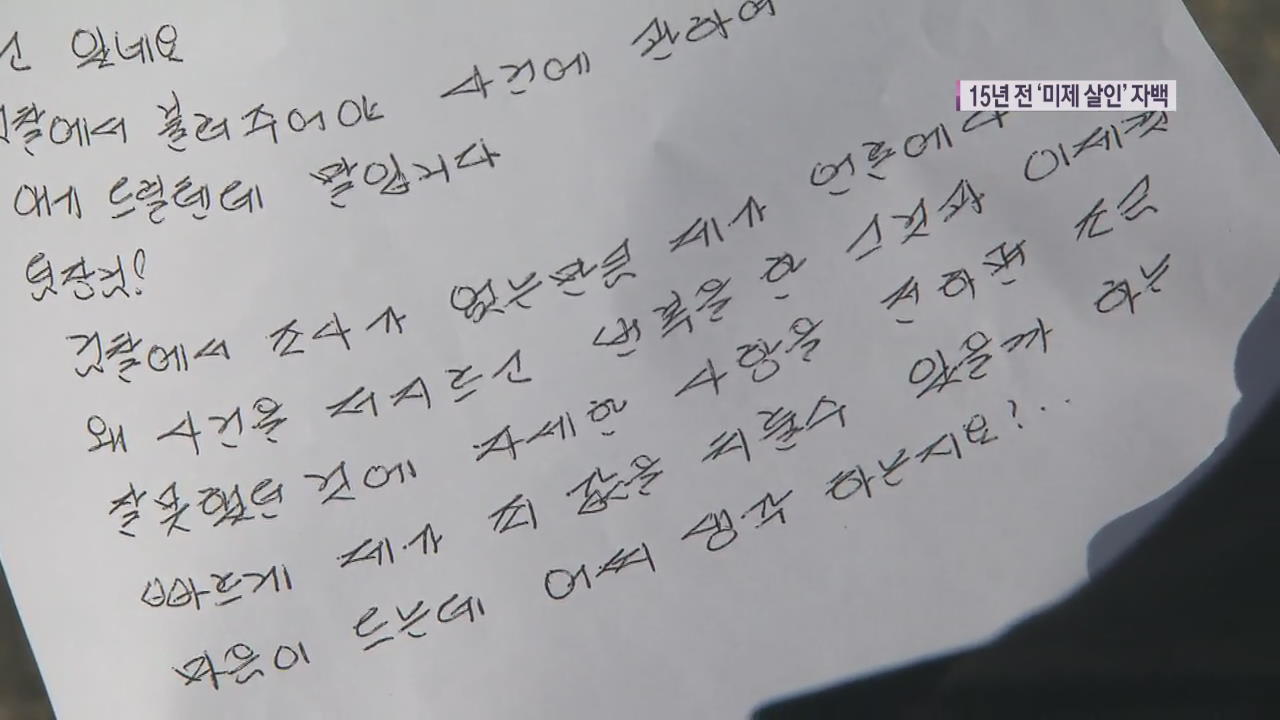 15년 전 ‘미제 살인’ 자백
신 있네요
검찰에서 불러주어야 사건에 관하여
얘게 드릴텐데 말입니다
뒷잔것!
검찰에서 조사가 없는만큼 제가 언론에다
왜 사건을 저지르신 번복을 한 스것과 이제껏
잘못했던 것에 자세한 사항을 전하면 조금
빠르게 제가 죄 값을 치룰수 있을까 하는
마음이 드는데 어찌 생각 하는지요?..